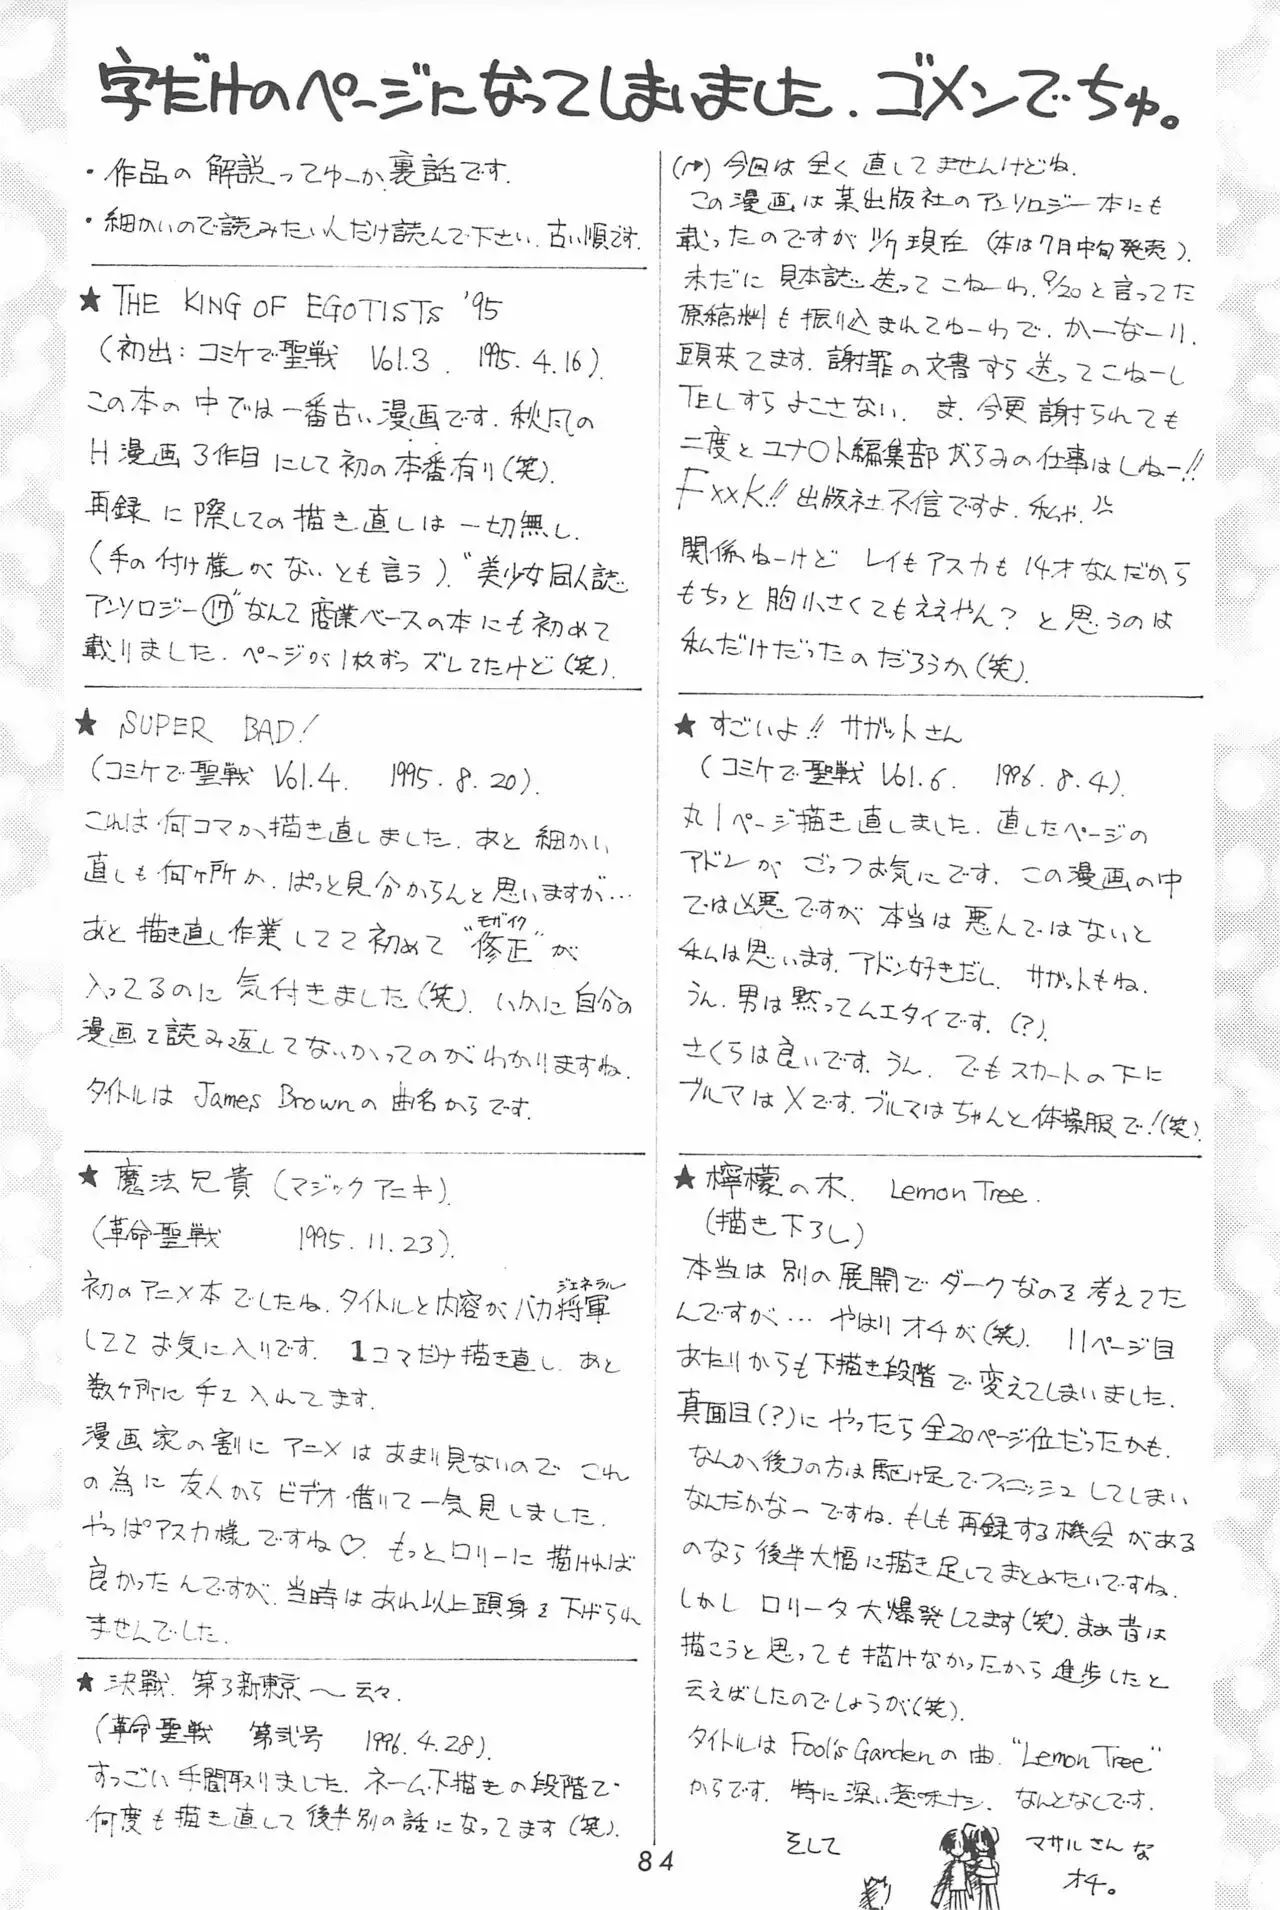 字だけのページになってしまいました.ゴメンでちゅ。
・作品の解説ってゆーか、裏話です.
・細かいので読みたい人だけ読んで下さい.古い順です.
★ THE KING OF EGOTISTS '95
(初出:コミケで聖戦 Vol.3. 1995.4.16).
この本の中では一番古い漫画です.秋风の
H漫画3作目にして初の本番有り(笑).
再録に際しての描き直しは一切無し.
(手の付け様がないとも言う).“美少女同人誌
アンソロジー⑰”なんて商業ベースの本にも初めて
載りました.ページが1枚ずつズレてたけど(笑).
★ SUPER BAD!
(コミケで聖戦 Vol.4. 1995.8.20).
これは何コマか描き直しました.あと細かい
直しも何ヶ所か.ぱっと見分からんと思いますが…
あと描き直し作業してて初めて“修正”が
モザイク
入ってるのに気付きました(笑).いかに自分の
漫画を読み返してないかってのがわかりますね.
タイトルは James Brownの曲名からです.
★ 魔法兄貴(マジックアニキ).
(革命聖戦 1995.11.23).
初のアニメ本でしたね.タイトルと内容がバカ将軍
ジェネラル
しててお気に入りです. 1コマだけ描き直し.あと
数ヶ所に手を入れてます.
漫画家の割にアニメはあまり見ないので これ
の為に友人からビデオ借りて一気見しました.
やっぱアスカ様ですね♡.もっとロリーに描ければ
良かったんですが、当時はあれ以上頭身を下げられ
ませんでした.
★ 決戦.第3新東京〜云々.
(革命聖戦 第弐号 1996.4.28).
すっごい手間取りました.ネーム・下描きの段階で
何度も描き直して後半別の話になってます(笑).
(→) 今回は全く直してませんけどね.
この漫画は某出版社のアンソロジー本にも
載ったのですが 現在(本は7月中旬発売).
未だに見本誌送ってこねーわ、9/20と言ってた
原稿料も振り込まれてねーわで、かーなーり
頭来てます.謝罪の文書すら送ってこねーし
TELすらよこさない. ま、今更謝られても
二度とユナ○ト編集部がらみの仕事はしねー!!
FxxK!! 出版社不信ですよ.私ゃ.
関係ねーけど レイもアスカも14才なんだから
もちっと胸小さくてもええやん? と思うのは
私だけだったのだろうか(笑).
★ すごいよ!! サガットさん
(コミケで聖戦 Vol.6. 1996.8.4).
丸1ページ描き直しました.直したページの
アドンがごっつお気にです.この漫画の中
では凶悪ですが本当は悪人ではないと
私は思います.アドン好きだし、サガットもね.
うん、男は黙ってムエタイです.(?).
さくらは良いです.うん. でもスカートの下に
ブルマは×です.ブルマはちゃんと体操服で!(笑).
★ 檸檬の木. Lemon Tree.
(描き下ろし)
本当は別の展開でダークなのを考えてた
んですが… やはりオチが(笑). 11ページ目
あたりからも下描き段階で変えてしまいました.
真面目(?)にやったら全20ページ位だったかも.
なんか後ろの方は駆け足でフィニッシュしてしまい
なんだかなーですね.もしも再録する機会がある
のなら後半大幅に描き足してまとめたいですね.
しかし ロリータ大爆発してます(笑).まぁ昔は
描こうと思っても描けなかったから進歩したと
云えばしたのでしょうが(笑).
タイトルは Fool's Gardenの曲.“Lemon Tree”
からです. 特に深い意味ナシ. なんとなしです.
そして
マサルさんな
オチ。
84